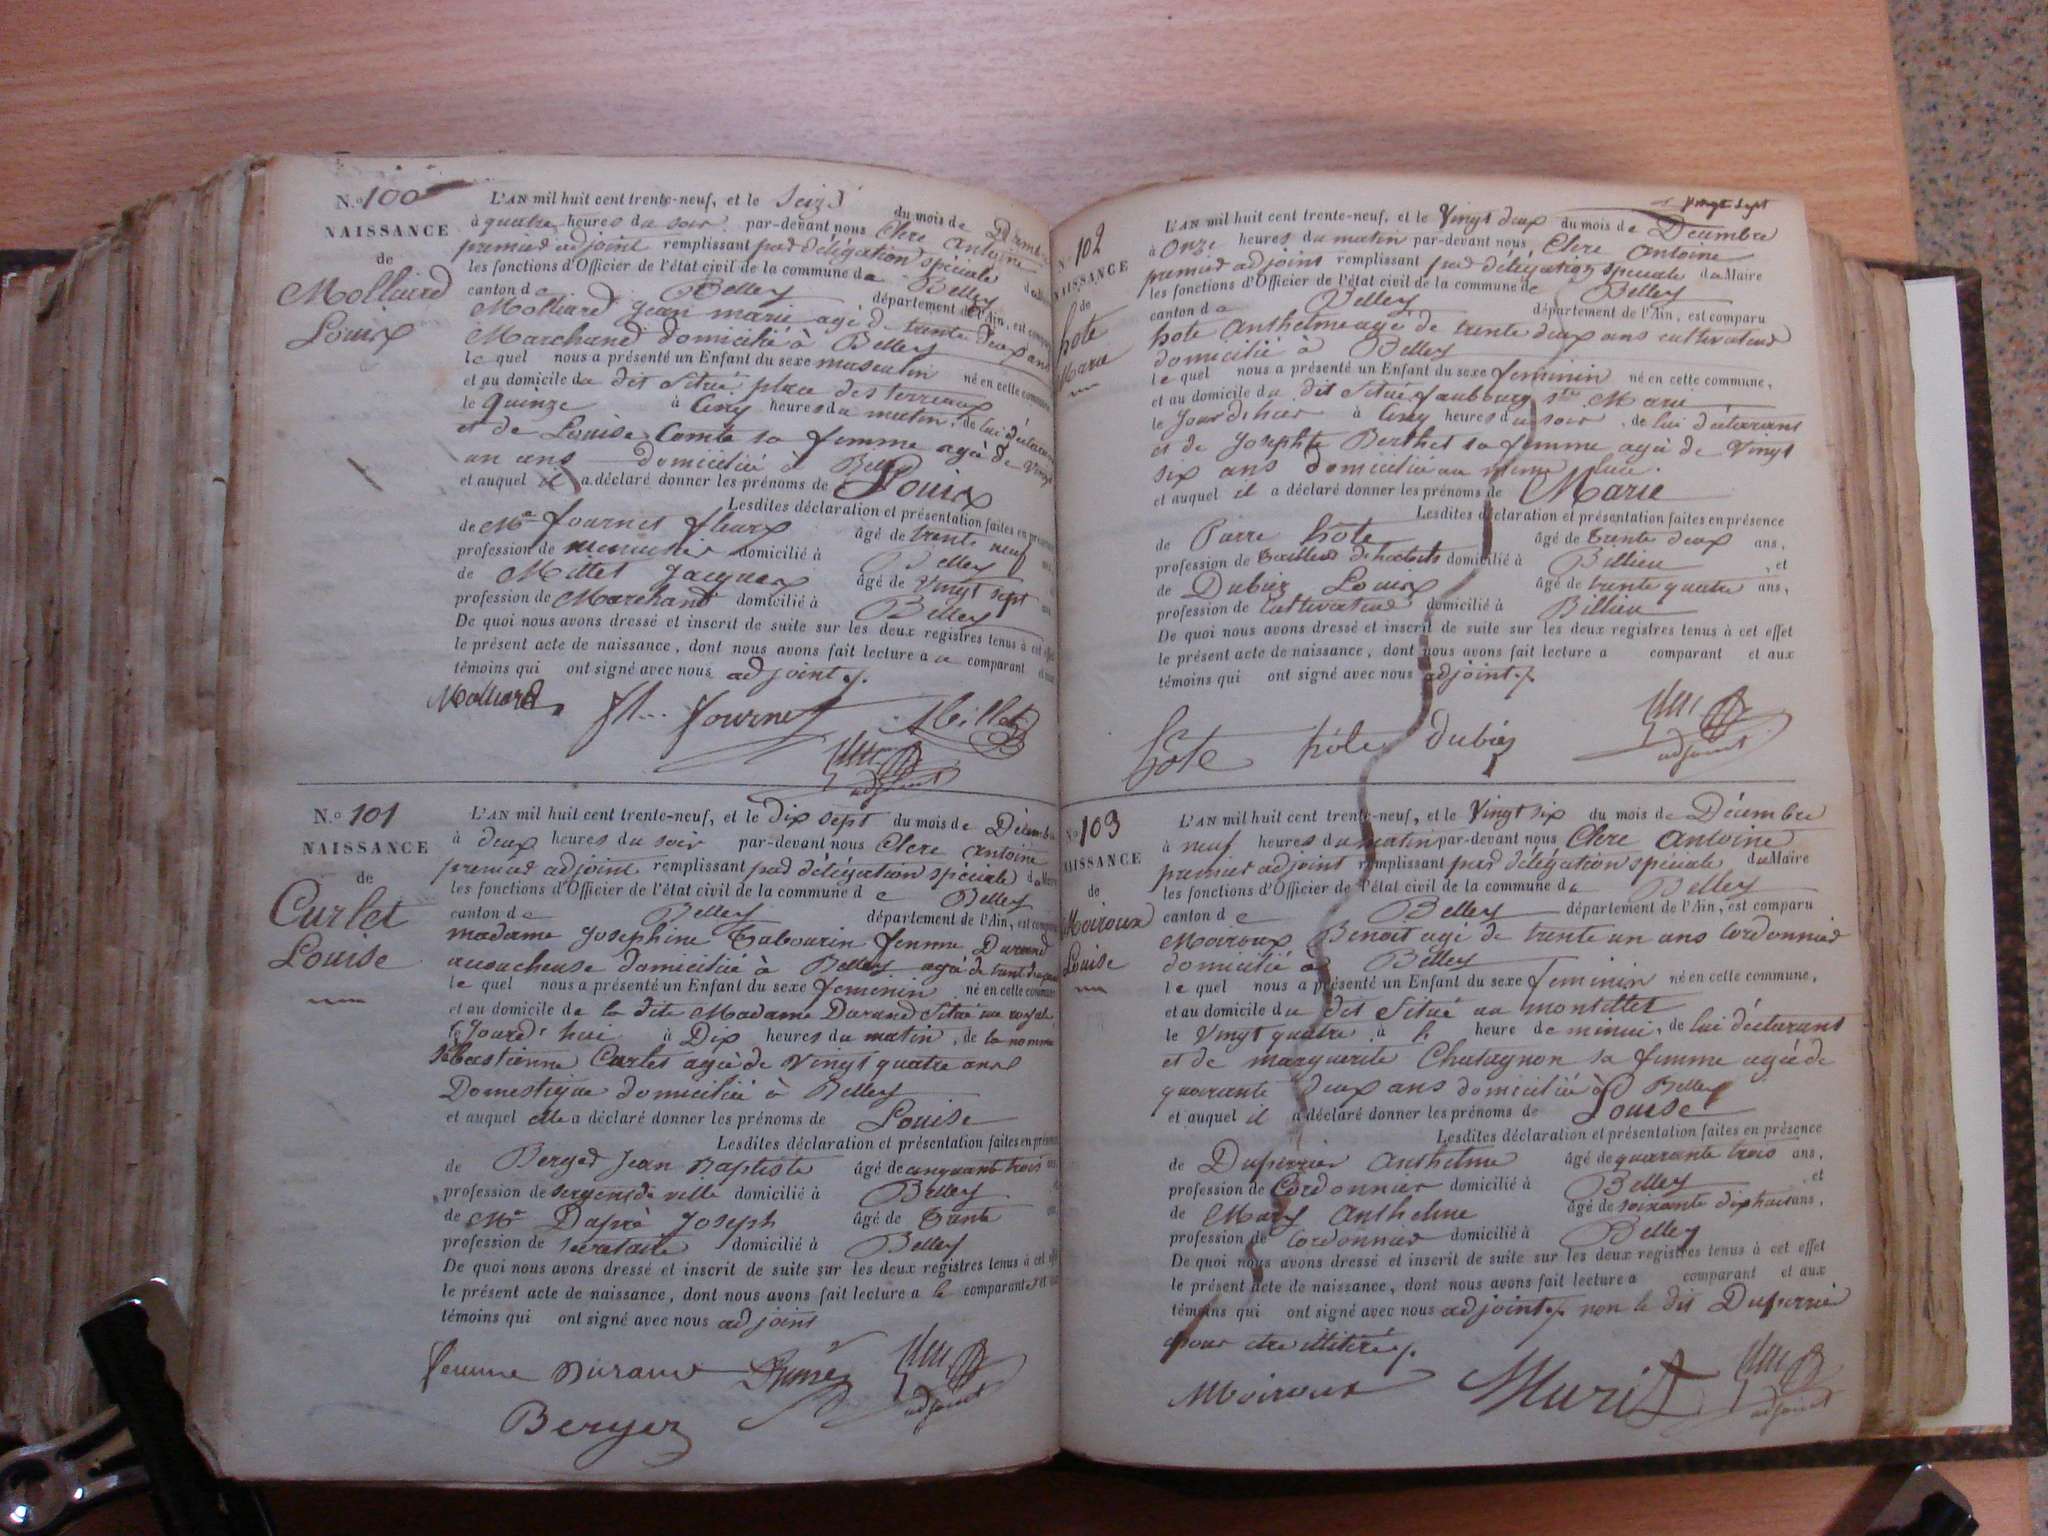 N.º 100
NAISSANCE
de
Molliard
Louis
L'AN mil huit cent trente-neuf, et le Seize du mois de Décembre
à quatre heures du soir par-devant nous Clerc Antoine
premier adjoint remplissant par délégation spéciale du
les fonctions d'Officier de l'état civil de la commune de Belley
canton de Belley département de l'Ain, est comparu
Molliard Jean marie agé de trente deux ans
Marchand domicilié à Belley
le quel nous a présenté un Enfant du sexe masculin né en cette commune
et au domicile du dit Situé place des terreaux
le Quinze à Cinq heures du matin, de lui déclarant
et de Louise Comte sa femme agée de Vingt
un ans domiciliée à Belley
et auquel il a déclaré donner les prénoms de Louis
Lesdites déclaration et présentation faites en présence
de Mr fournet fleury âgé de trente neuf
profession de menuisier domicilié à Belley
de Millet Jacques âgé de Vingt sept
profession de Marchand domicilié à Belley
De quoi nous avons dressé et inscrit de suite sur les deux registres tenus à cet effet
le présent acte de naissance, dont nous avons fait lecture au comparant et aux
témoins qui ont signé avec nous adjoint
Molliard fl.. fournet Millet
Clerc
adjoint
N.º 101
NAISSANCE
de
Curlet
Louise
L'AN mil huit cent trente-neuf, et le dix sept du mois de Décembre
à deux heures du soir par-devant nous Clerc Antoine
premier adjoint remplissant par délégation spéciale du Maire
les fonctions d'Officier de l'état civil de la commune de Belley
canton de Belley département de l'Ain, est comparu
madame Josephine Tabourin femme Durand
acoucheuse domiciliée à Belley agée de
le quel nous a présenté un Enfant du sexe femenin né en cette commune
et au domicile de la dite Madame Durand Situé
le Jourd'hui à Dix heures du matin, de la nommée
Sébastienne Curlet agée de Vingt quatre ans
Domestique domiciliée à Belley
et auquel elle a déclaré donner les prénoms de Louise
Lesdites déclaration et présentation faites en présence
de Berger Jean Baptiste âgé de cinquante trois ans
profession de sergent de ville domicilié à Belley
de Mr Joseph âgé de Trente
profession de secretaire domicilié à Belley
De quoi nous avons dressé et inscrit de suite sur les deux registres tenus à cet effet
le présent acte de naissance, dont nous avons fait lecture a la comparante et aux
témoins qui ont signé avec nous adjoint
femme Durand Clerc
adjoint
Berger
Vingt sept
N.º 102
NAISSANCE
de
hote
Marie
L'AN mil huit cent trente-neuf, et le Vingt deux du mois de Décembre
à Onze heures du matin par-devant nous Clerc Antoine
premier adjoint remplissant par délégation spéciale du Maire
les fonctions d'Officier de l'état civil de la commune de Belley
canton de Belley département de l'Ain, est comparu
hote Anthelme agé de trente deux ans cultivateur
domicilié à Belley
le quel nous a présenté un Enfant du sexe feminin né en cette commune,
et au domicile du dit Situé faubourg Ste Marie
le Jour d'hier à Cinq heures du soir, de lui déclarant
et de Josephte Berthet sa femme agée de Vingt
six ans domiciliée au même lieu.
et auquel il a déclaré donner les prénoms de Marie
Lesdites déclaration et présentation faites en présence
de Pierre hôte âgé de trente deux ans,
profession de tailleur d'habits domicilié à Billieu, et
de Dubiez Louis âgé de trente quatre ans,
profession de Cultivateur domicilié à Billieu
De quoi nous avons dressé et inscrit de suite sur les deux registres tenus à cet effet
le présent acte de naissance, dont nous avons fait lecture a comparant et aux
témoins qui ont signé avec nous adjoint
hôte hôte dubiez Clerc
adjoint
N.º 103
NAISSANCE
de
Moiroux
Louise
L'AN mil huit cent trente-neuf, et le Vingt six du mois de Décembre
à neuf heures du matin par-devant nous Clerc Antoine
premier adjoint remplissant par délégation spéciale du Maire
les fonctions d'Officier de l'état civil de la commune de Belley
canton de Belley département de l'Ain, est comparu
Moiroux Benoit agé de trente un ans Cordonnier
domicilié à Belley
le quel nous a présenté un Enfant du sexe feminin né en cette commune,
et au domicile du dit Situé au montillet
le Vingt quatre à heure de minui, de lui déclarant
et de marguerite Chatagnon sa femme agée de
quarante deux ans domiciliée à Belley
et auquel il a déclaré donner les prénoms de Louise
Lesdites déclaration et présentation faites en présence
de Duperrier Anthelme âgé de quarante trois ans,
profession de Cordonnier domicilié à Belley, et
de Anthelme âgé de soixante dix huit ans,
profession de Cordonnier domicilié à Belley
De quoi nous avons dressé et inscrit de suite sur les deux registres tenus à cet effet
le présent acte de naissance, dont nous avons fait lecture a comparant et aux
témoins qui ont signé avec nous adjoint non le dit Duperrier
pour être illitéré
Moiroux Clerc
adjoint